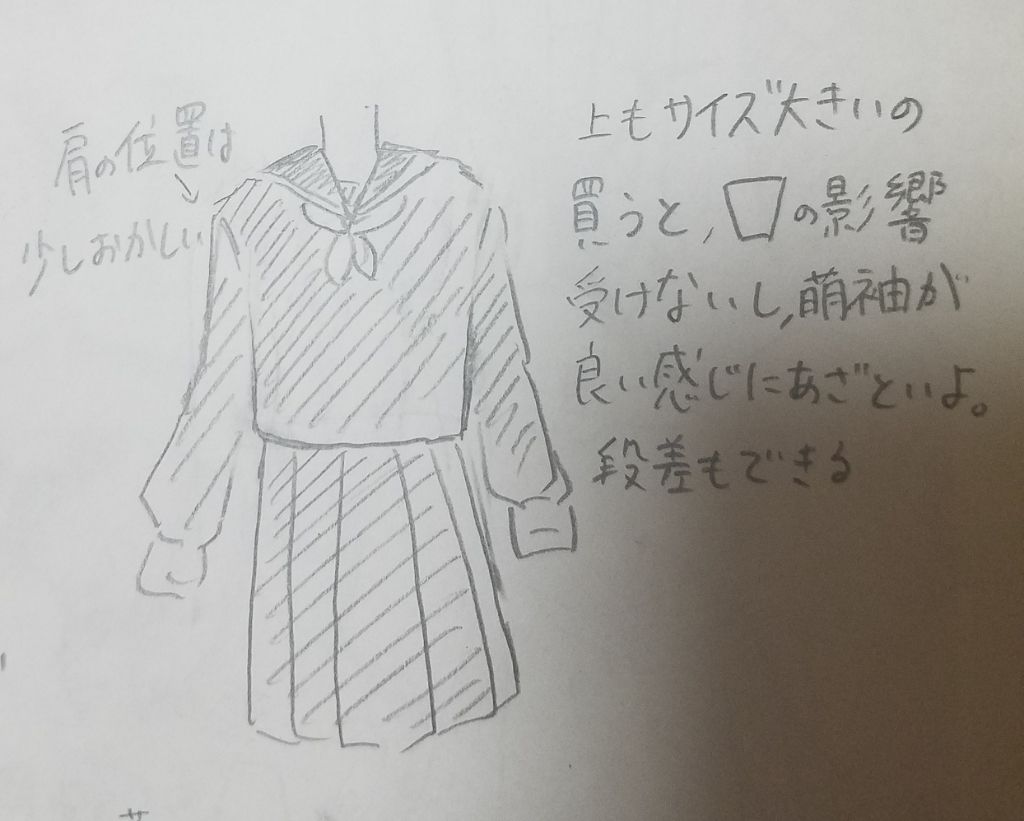 肩の位置は
少しおかしい
上もサイズ大きいの
買うと,の影響
受けないし,萌袖が
良い感じにあざといよ。
段差もできる